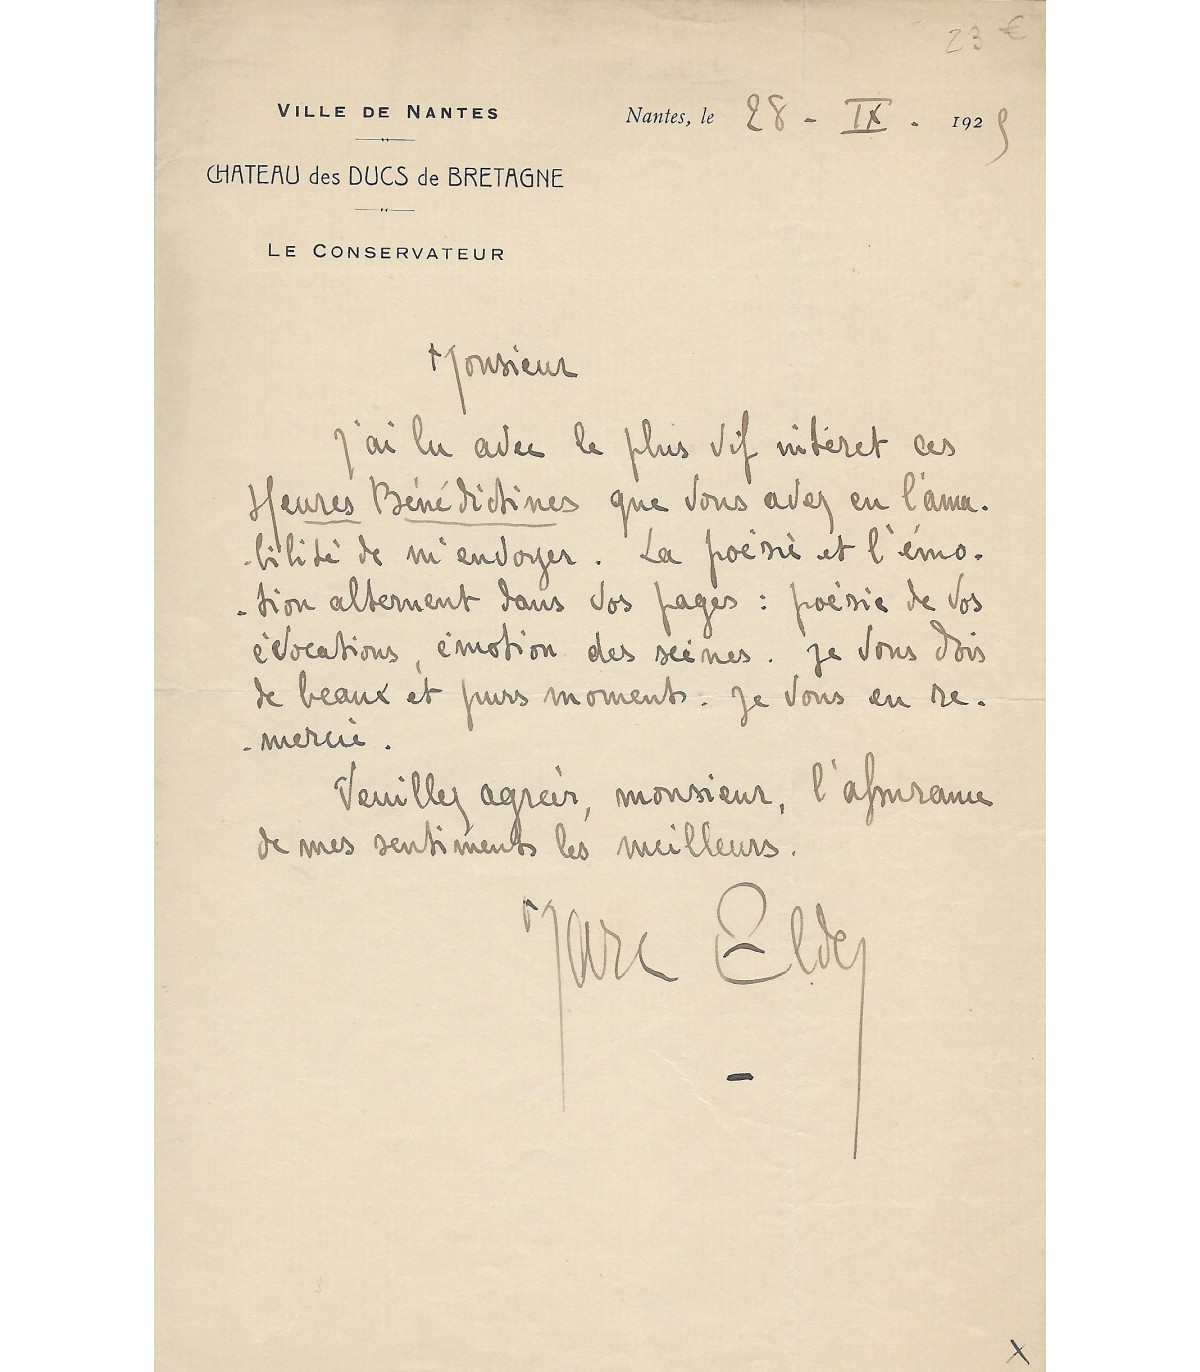 23 €
VILLE DE NANTES
Nantes, le 28 - IX - 1929
CHATEAU des DUCS de BRETAGNE
LE CONSERVATEUR
Monsieur
J'ai lu avec le plus vif intéret ces
Heures Bénédictines que vous avez eu l'ama-
-bilité de m'envoyer. La poésie et l'émo-
-tion alternent dans vos pages : poésie de vos
évocations, émotion des scènes. Je vous dois
de beaux et purs moments. Je vous en re-
-mercie.
Veuillez agréer, monsieur, l'assurance
de mes sentiments les meilleurs.
Marc Elder
X